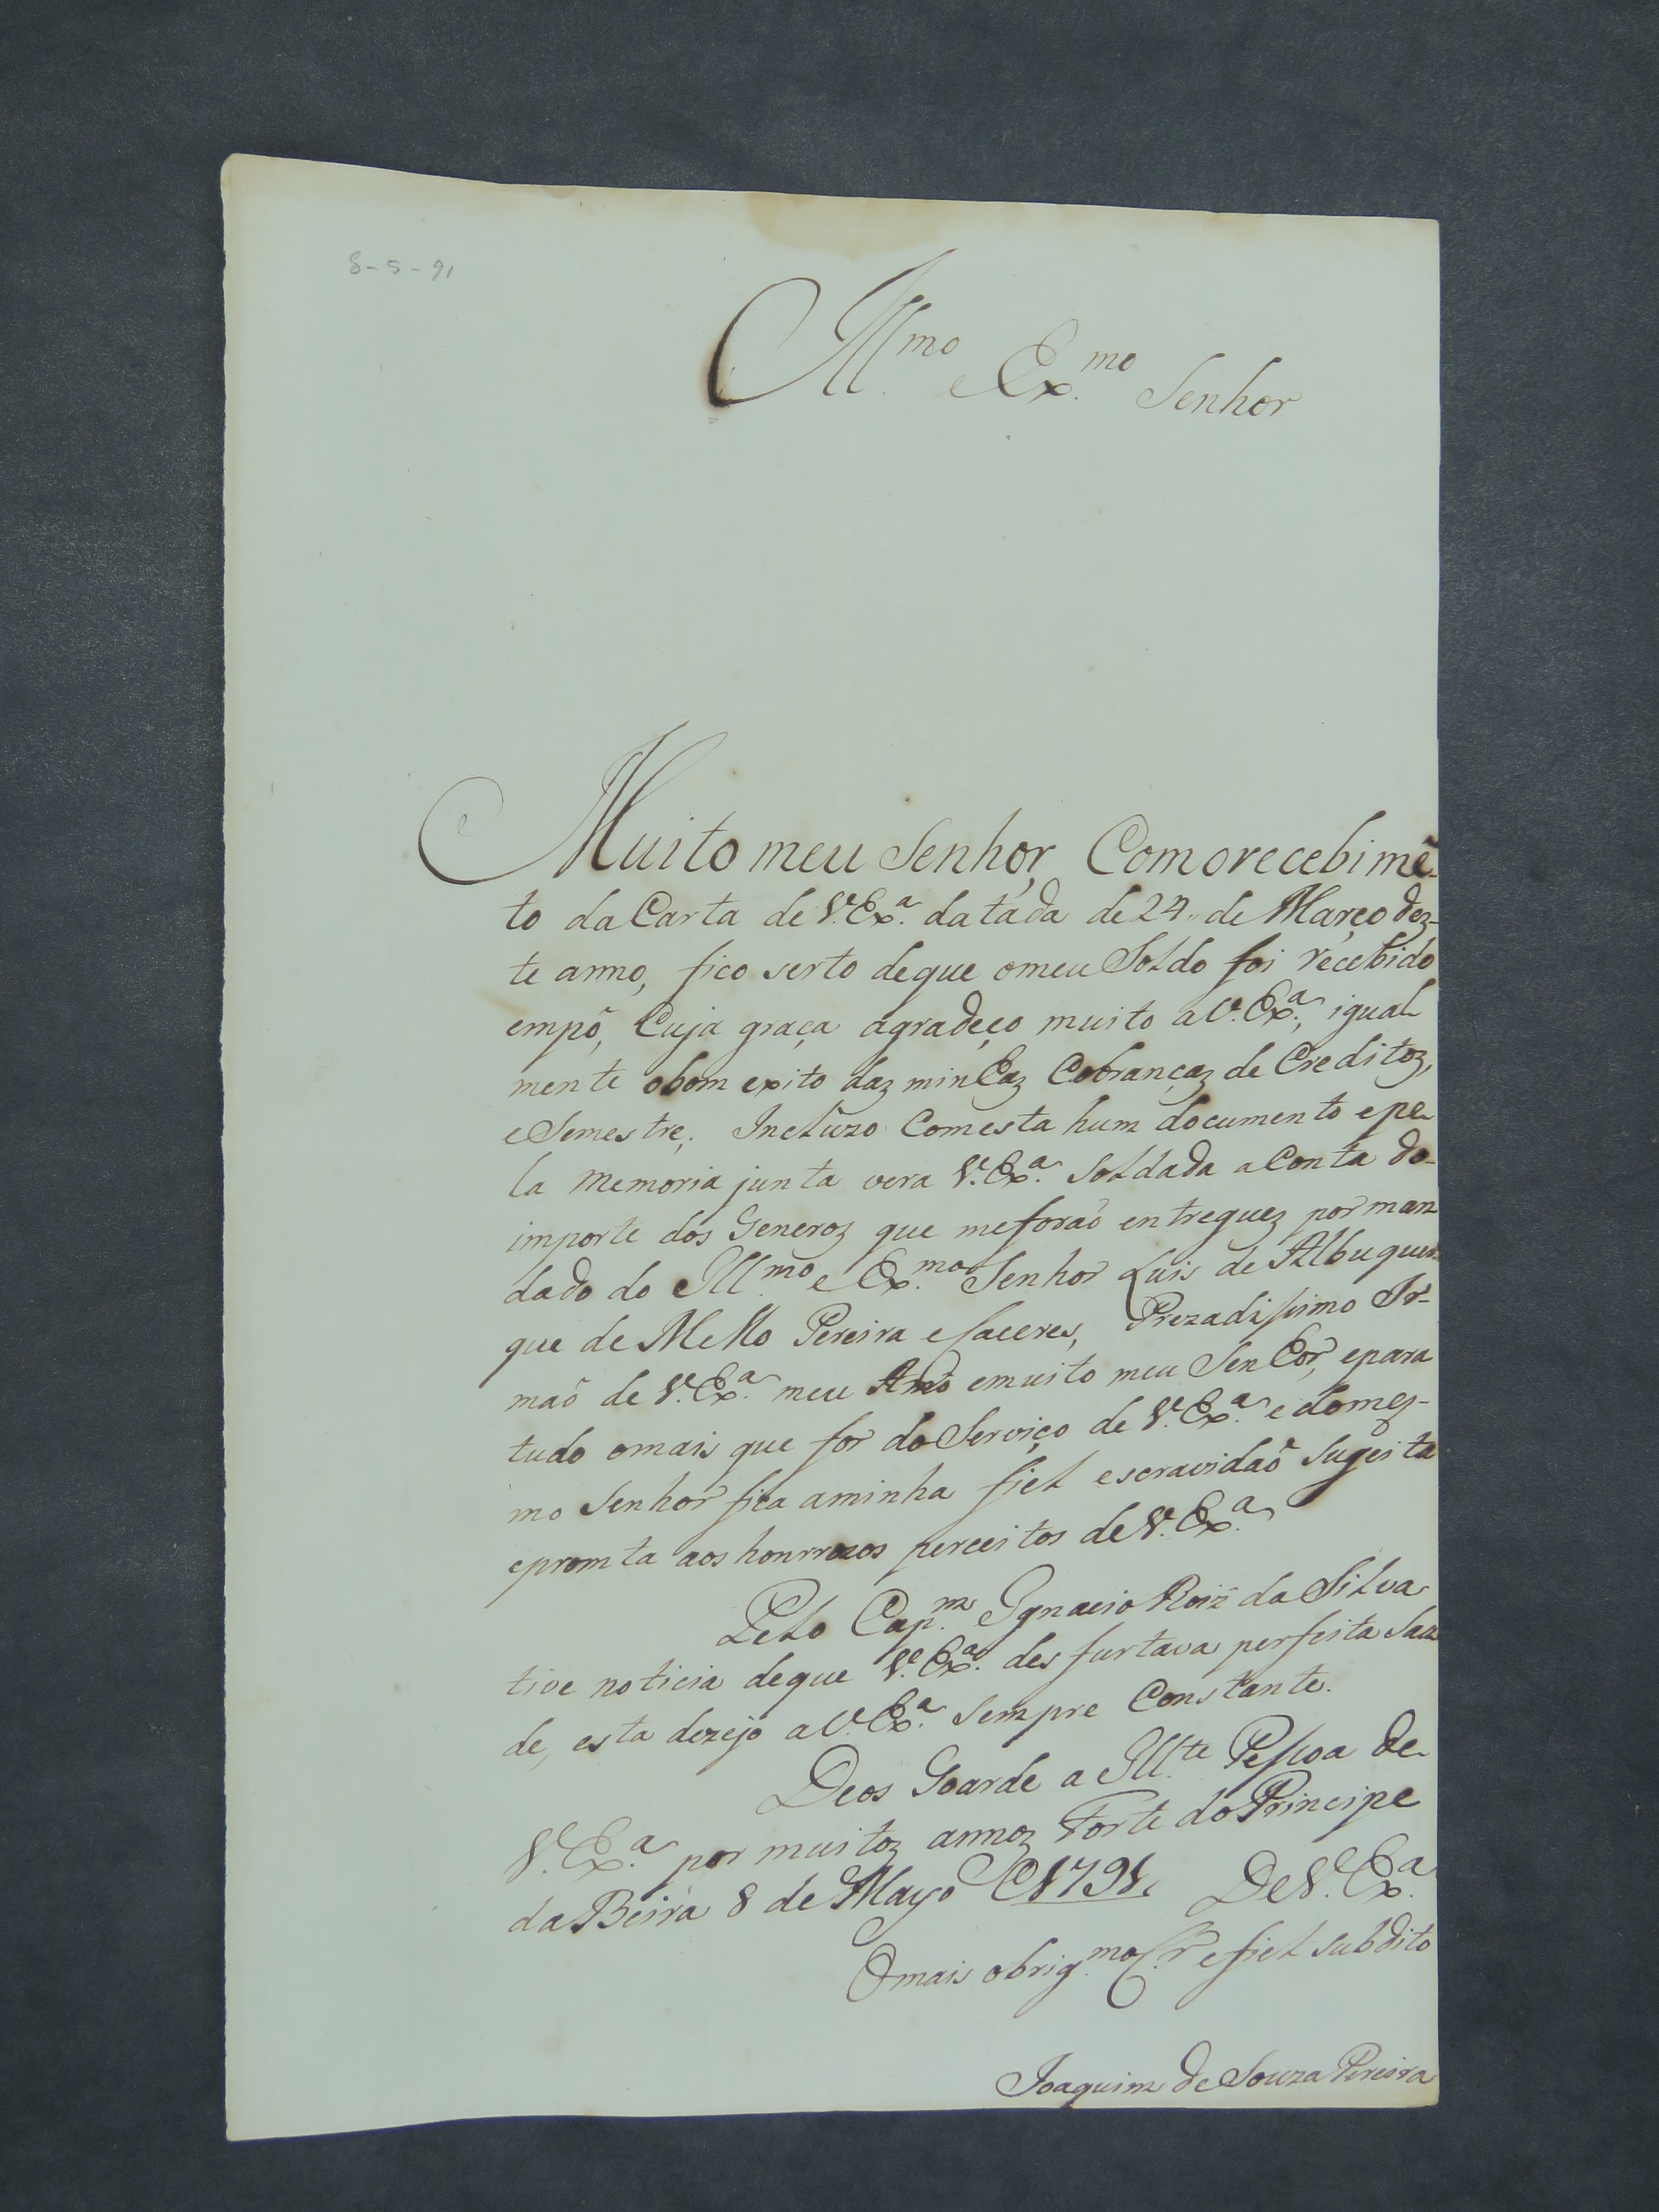 8-5-91
Ill.mo e Ex.mo Senhor
Muito meu Senhor, Com o recebimẽ-
to da Carta de V. Ex.a datada de 24 de Março dez-
te anno, fico serto de que o meu Soldo foi recebido
em pô, Cuja graça agradeço muito a V. Ex.a, igual-
mente o bom exito daz minhaz Cobrançaz de Creditoz,
e Semestre. Incluzo Com esta hum documento e pe-
la memoria junta vera V. Ex.a Soldada a Conta do
importe dos Generoz que me foraõ entreguez por man
dado do Ill.mo e Ex.mo Senhor Luis de Albuquer-
que de Mello Pereira e Caceres, Prezadissimo Ir-
maõ de V. Ex.a meu Amo e muito meu Senhor, e para
tudo o mais que for do Serviço de V. Ex.a e do mes-
mo Senhor fica a minha fiel escravidaõ Sugeita
e promta aos honrrozos perceitos de V. Ex.a
Pelo Cap.m Ignacio Roiz da Silva
tive noticia de que V. Ex.a desfurtava perfeita Sau
de, esta dezejo a V. Ex.a Sempre Constante.
Deos Goarde a Ill.te Pessoa de
V. Ex.a por muitoz annoz Forte do Principe
da Beira 8 de Mayo de 1791. De V. Ex.a
O mais obrig.mo Cr.º e fiel subdito
Joaquim de Souza Pereira